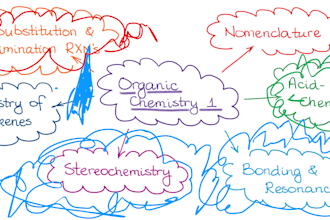 Substitution &
Elimination RXN's
Nomenclature
Organic
Chemistry 1
Acid-
Chem
stry of
kenes
Stereochemistry
Bonding &
Resonanc